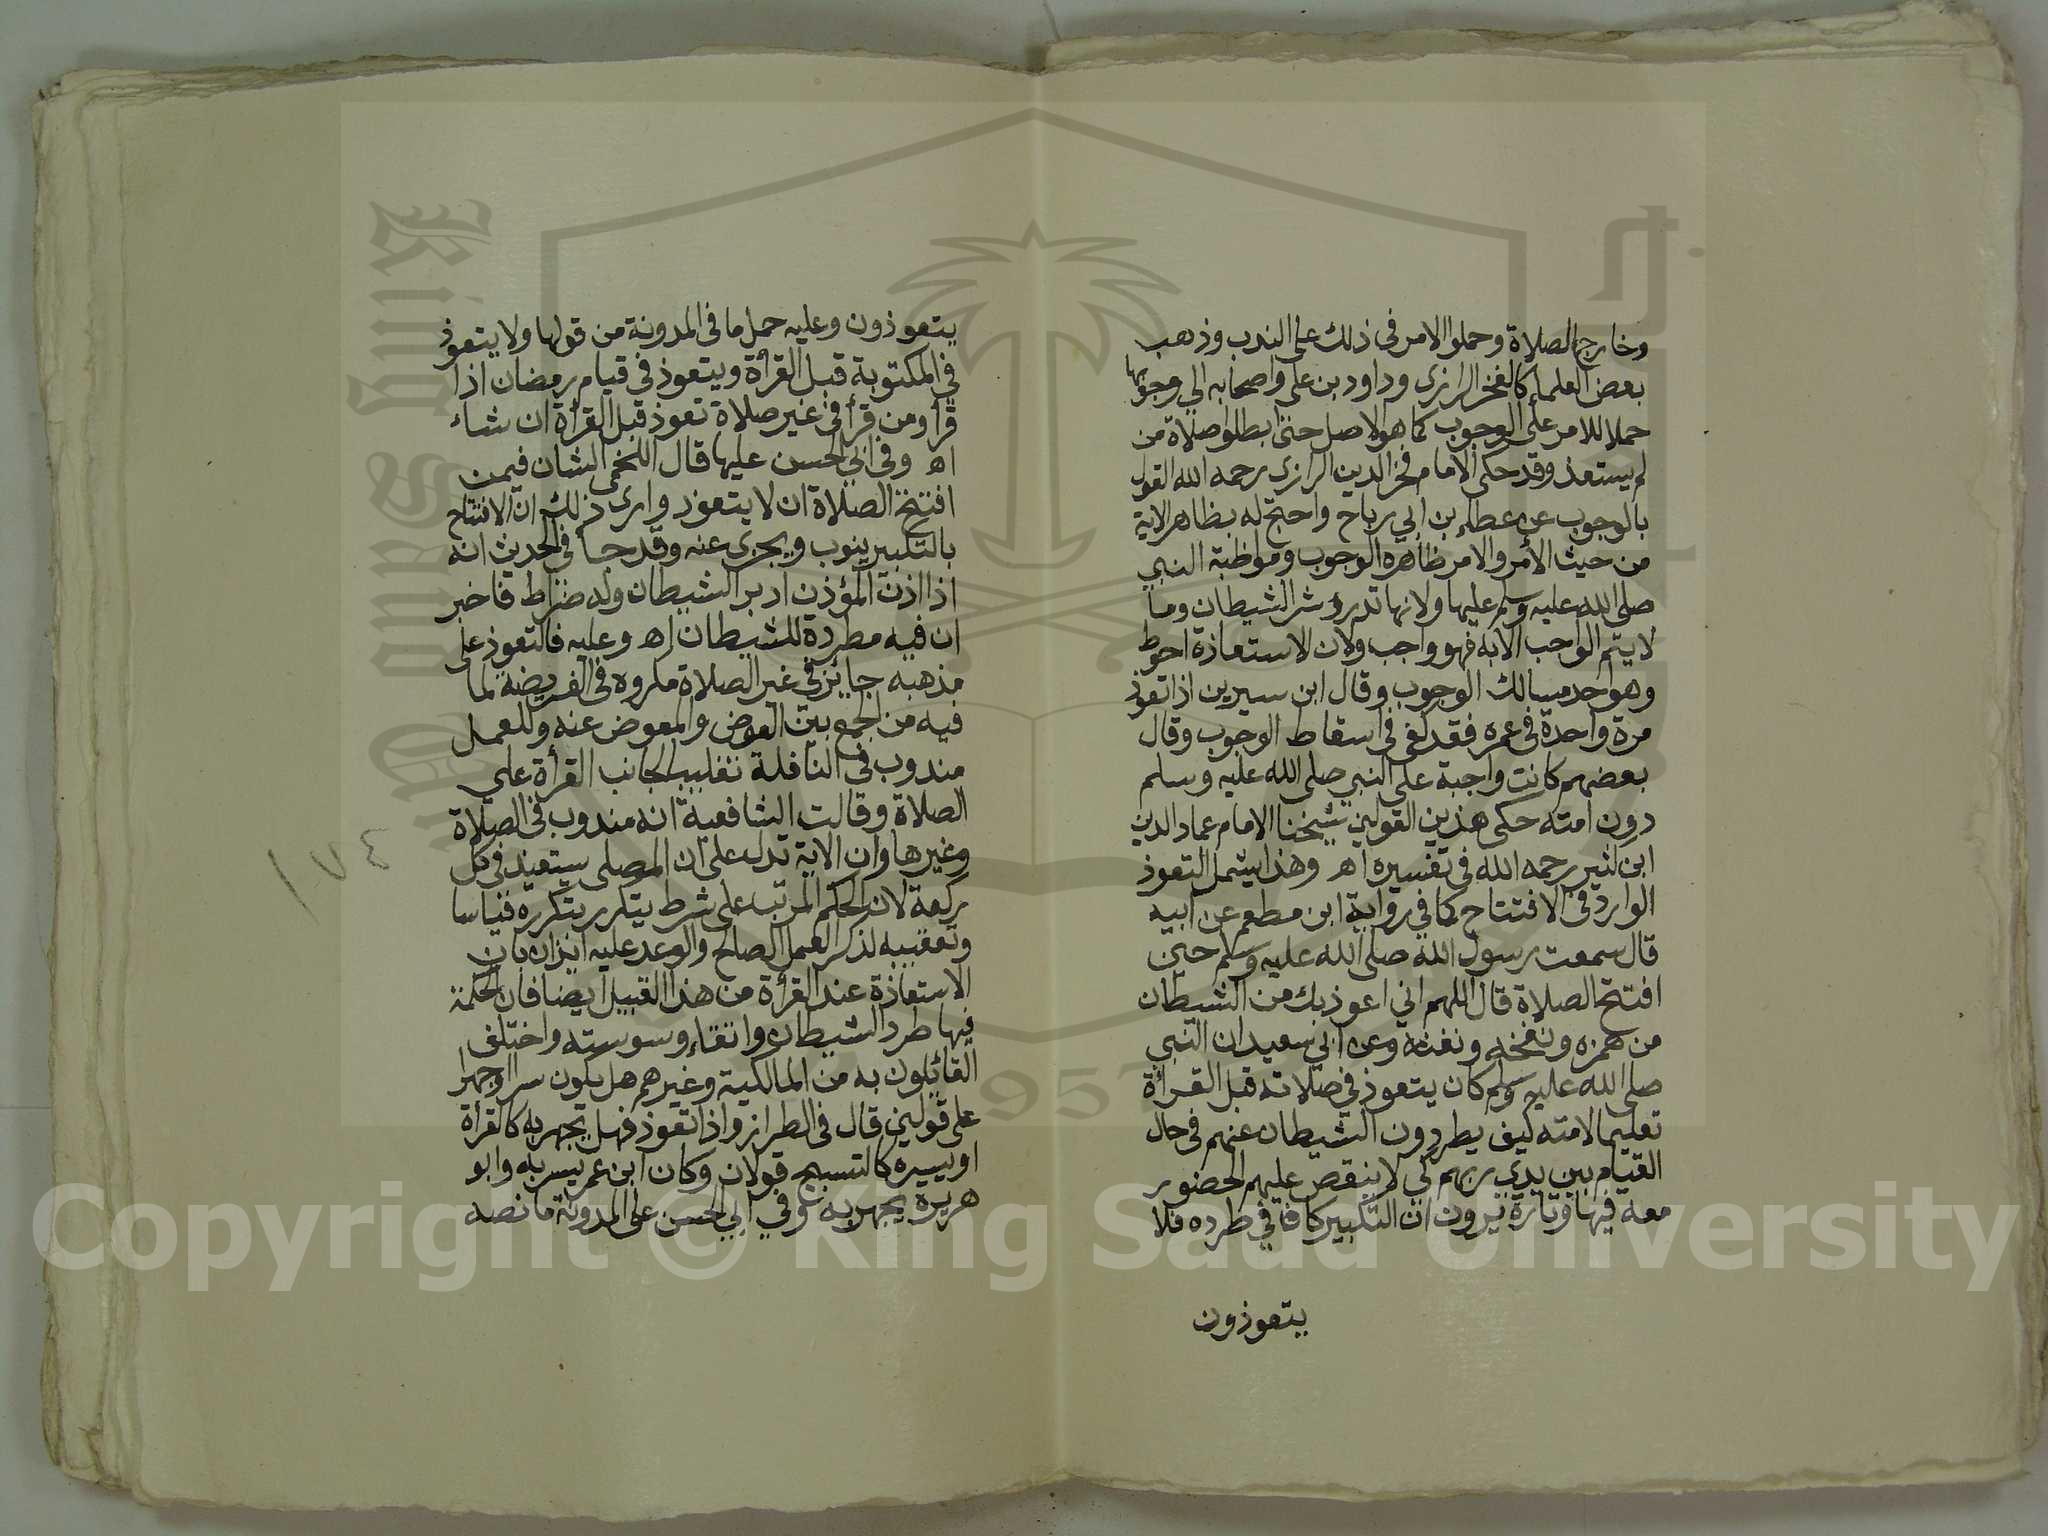 وخارج الصلاة وحملوا الامر في ذلك على الندب وذهب
بعض العلماء كالفخر الرازي وداود بن على واصحابه الي وجوبها
حملا للامر على الوجوب كما هو الاصل حتى ابطلوا صلاة من
لم يستعذ وقد حكى الامام فخر الدين الرازي رحمه الله القول
بالوجوب عن عطاء بن ابي رباح واحتج له بظاهر الاية
من حيث الأمر والامر ظاهره الوجوب ومواظبة النبي
صلى الله عليه وسلم عليها ولانها تدرؤ شر الشيطان وما
لا يتم الواجب الا به فهو واجب ولان الاستعاذة احوط
وهو احد مسالك الوجوب وقال ابن سيرين اذا تعوذ
مرة واحدة في عمره فقد كفى في اسقاط الوجوب وقال
بعضهم كانت واجبة على النبي صلى الله عليه وسلم
دون امته حكى هذين القولين شيخنا الامام عماد الدين
ابن كثير رحمه الله في تفسيره اه وهذا يشمل التعوذ
الوارد في الافتتاح كما في رواية ابن مطعم عن ابيه
قال سمعت رسول الله صلى الله عليه وسلم حين
افتتح الصلاة قال اللهم اني اعوذ بك من الشيطان
من همزه ونفخه ونفثه وعن ابي سعيد ان النبي
صلى الله عليه وسلم كان يتعوذ في صلاته قبل القرأة
تعليما لامته كيف يطردون الشيطان عنهم في حال
القيام بين يدي ربهم كي لا ينقص عليهم الحضور
معه فيها وتارة يرون ان التكبير كافا في طرده فلا
يتعوذون
يتعوذون وعليه حمل ما في المدونة من قولها ولا يتعوذ
في المكتوبة قبل القرأة ويتعوذ في قيام رمضان اذا
قرأ ومن قرأ في غير صلاة تعوذ قبل القرأة ان شاء
اه وفي ابي الحسن عليها قال اللخمي الشان فيمن
افتتح الصلاة ان لا يتعوذ وارى ذلك ان الافتتاح
بالتكبير ينوب ويجزى عنه وقد جا في الحديث انه
اذا اذن المؤذن ادبر الشيطان وله ضراط فاخبر
ان فيه مطردة للشيطان اه وعليه فالتعوذ على
مذهبه جايز في غير الصلاة مكروه في الفريضة لما
فيه من الجمع بين العوض والمعوض عنه وللعمل
مندوب في النافلة تغليبا لجانب القرأة علي
الصلاة وقالت الشافعية انه مندوب في الصلاة
وغيرها وان الاية تدل على ان المصلى يستعيذ في كل
ركعة لان الحكم المرتب على شرط يتكرر بتكرره قياسا
وتعقيبه لذكر العمل الصالح والوعد عليه ايذان بان
الاستعاذة عند القرأة من هذا القبيل ايضا فان الحكمة
فيها طرد الشيطان واتقاء وسوسته واختلف
القائلون به من المالكية وغيرهم هل يكون سرا او جهرا
على قولين قال في الطراز واذا تعوذ فهل يجهر به كالقرأة
او يسره كالتسبيح قولان وكان ابن عمر يسر به وابو
هريرة يجهر به وفي ابي الحسن على المدونة ما نصه
١٧٤
King Saud University
1957
Copyright © King Saud University